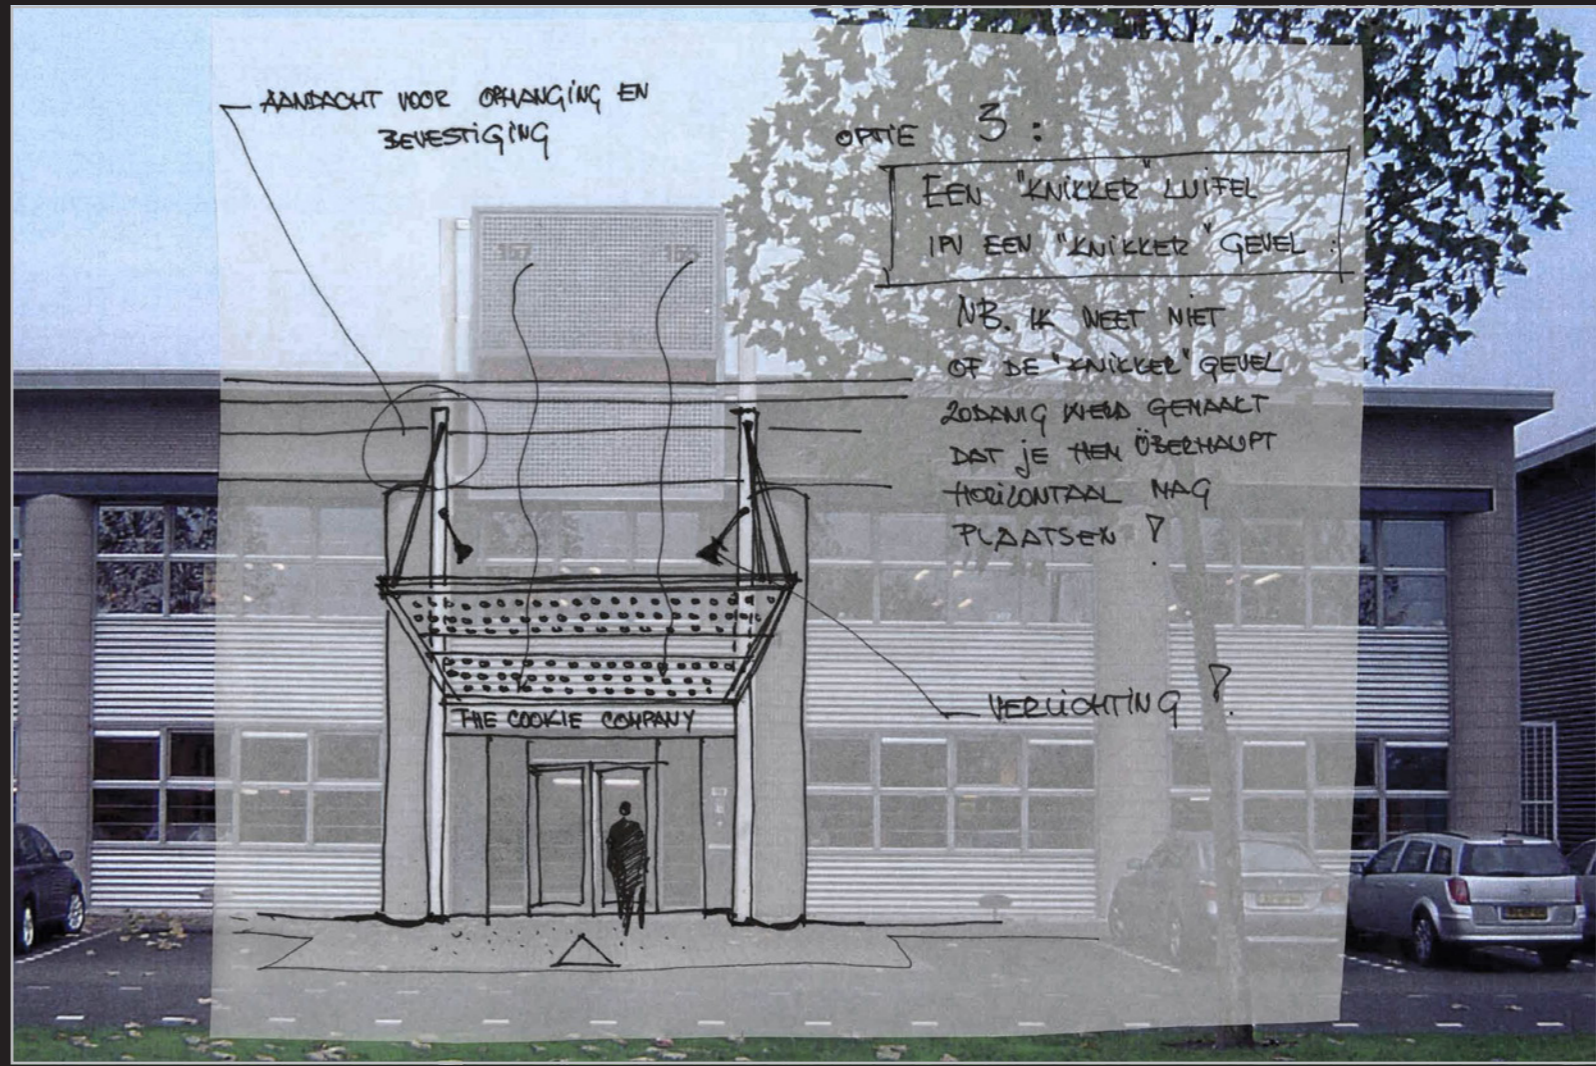 AANDACHT VOOR OPHANGING EN
BEVESTIGING
OPTIE 3 :
EEN "KNIKKER" LUIFEL
IPV EEN "KNIKKER" GEVEL :
NB. IK WEET NIET
OF DE "KNIKKER" GEVEL
ZODANIG WERD GEMAAKT
DAT JE HEM ÜBERHAUPT
HORIZONTAAL MAG
PLAATSEN !
157
VERLICHTING !
THE COOKIE COMPANY